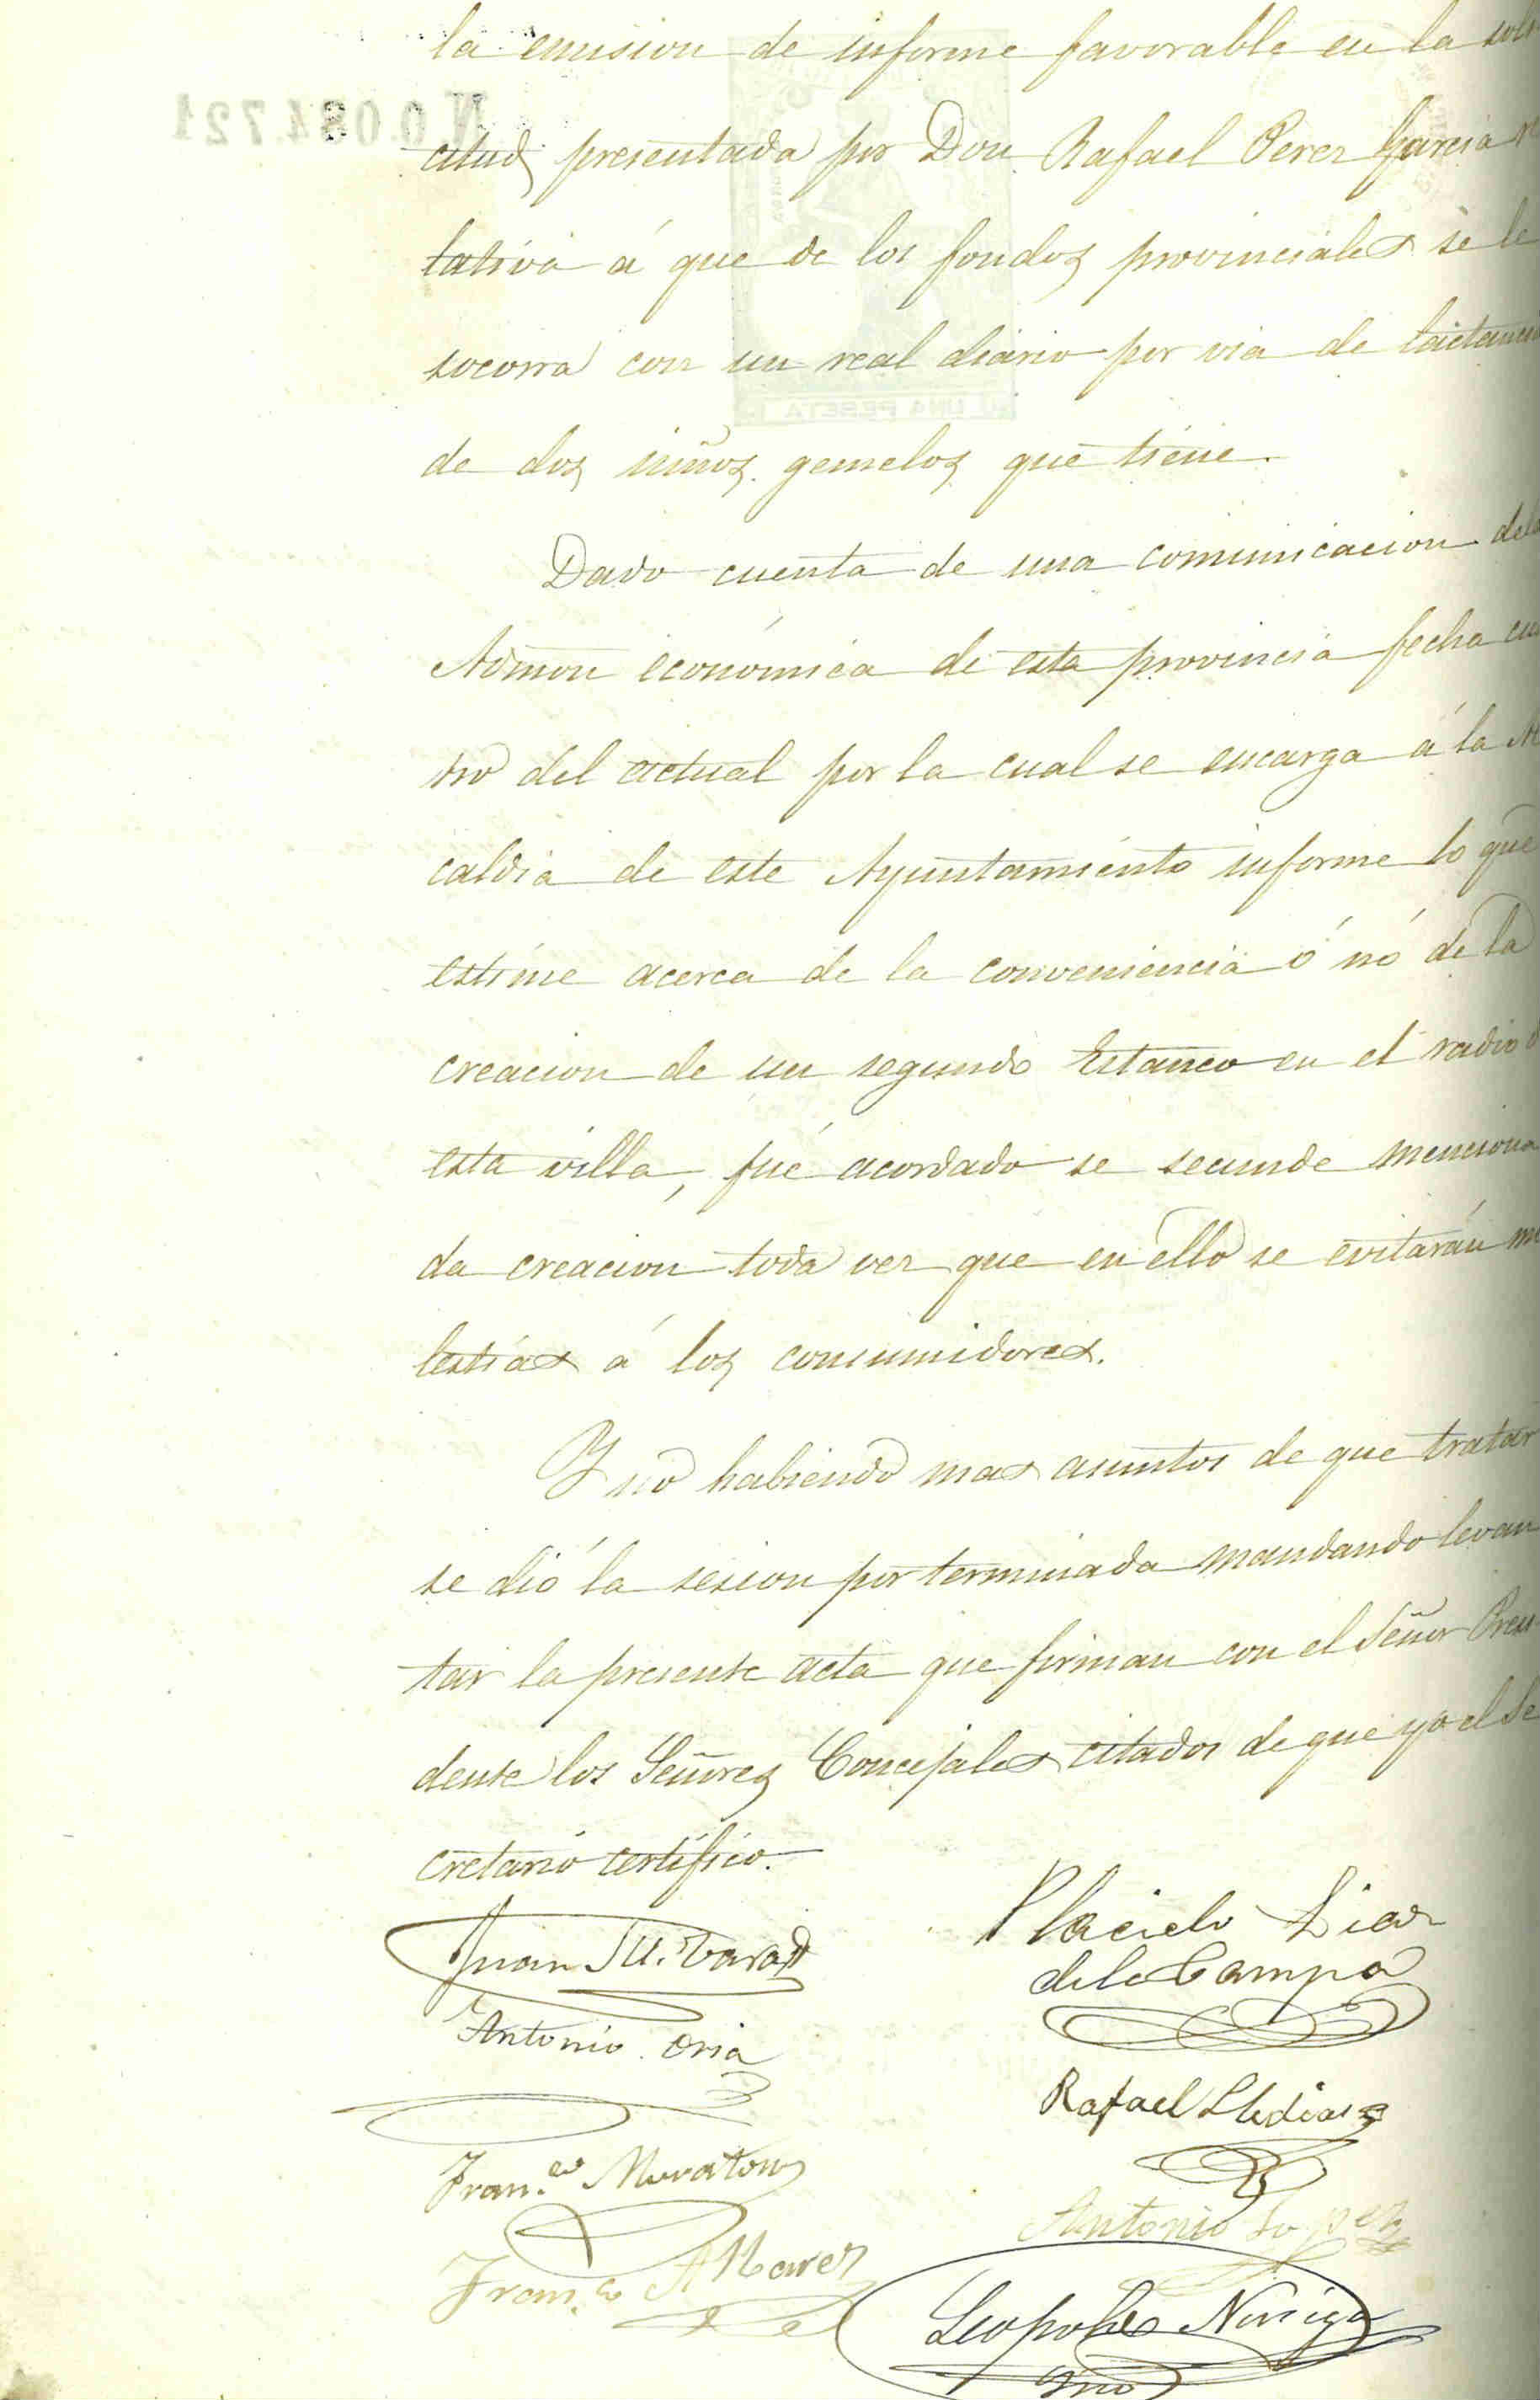 la emision de informe favorable en la soli
N.0.084.721
citud presentada por Don Rafael Perez Garcia re
lativa á que de los fondos provinciales se le
socorra con un real diario por via de lactancia
UNA PESETA
de dos niños gemelos que tiene.
Dado cuenta de una comunicacion de la
Admon económica de esta provincia fecha cua
tro del actual por la cual se encarga á la Al
caldia de este Ayuntamiento informe lo que
estime acerca de la conveniencia ó nó de la
creacion de un segundo Estanco en el radio d
esta villa, fué acordado se secunde menciona
da creacion toda vez que en ello se evitarán mo
lestias á los consumidores.
Y no habiendo mas asuntos de que tratar
se dió la sesion por terminada mandando levan
tar la presente acta que firman con el Señor Presi
dente los Señores Concejales citados de que yo el Se
cretario certifico.
Juan M.
Placido Diaz
de la Campa
Antonio Oria
Rafael
Fran.co Moraton
Antonio Lopez
Fran.co Alvarez
Leopoldo Noriega
Srio